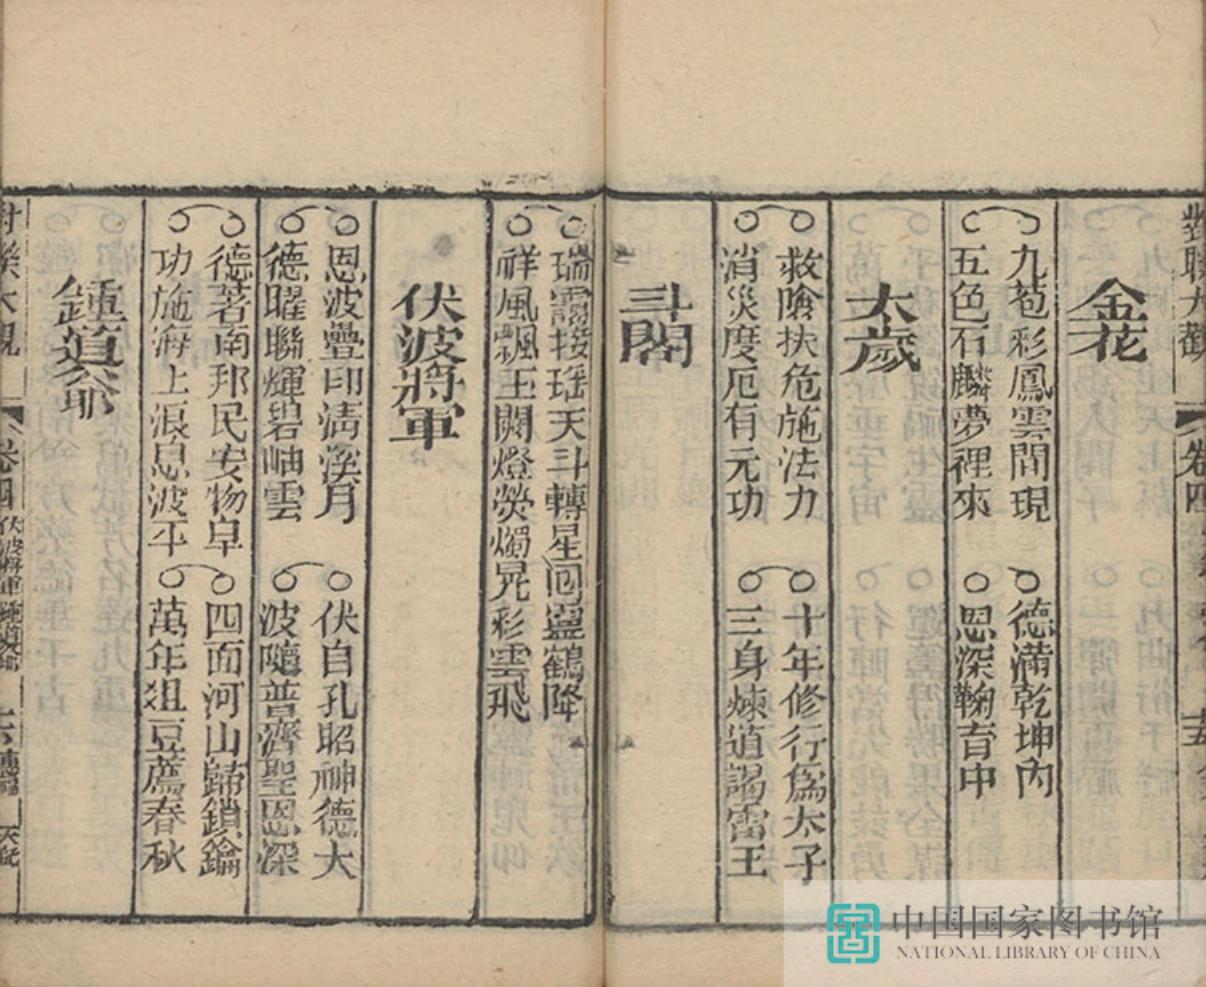 對聯大觀 卷四
金花
九苞彩鳳雲間現
五色石麟夢裡來
德滿乾坤內
恩深鞠育中
太歲
救險扶危施法力
消災度厄有元功
十年修行爲太子
三身煉道謁雷王
斗閣
瑞靄接瑤天斗轉星回鸞鶴降
祥風飄玉闕燈熒燭晃彩雲飛
伏波將軍
恩波疊印清溪月
德曜聯輝碧岫雲
伏自孔昭神德大
波隨普濟聖恩深
德著南邦民安物阜
功施海上浪息波平
四面河山歸鎖鑰
萬年俎豆薦春秋
鍾道爺
卷四 伏波將軍 鍾道爺
中国国家图书馆
NATIONAL LIBRARY OF CHINA